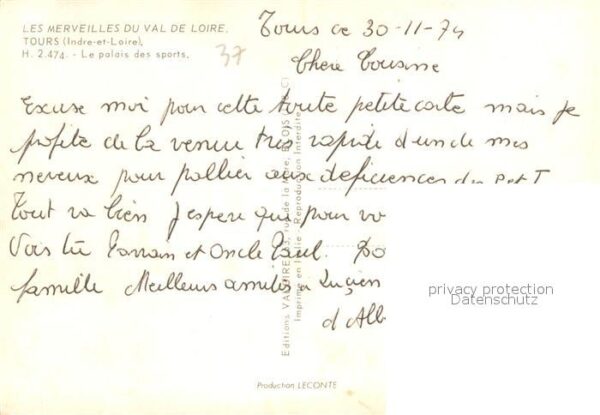 LES MERVEILLES DU VAL DE LOIRE.
TOURS (Indre-et-Loire).
H. 2.474. - Le palais des sports.
37
Tours ce 30-11-74
Chere Cousine
Excuse moi pour cette toute petite carte mais je
profite de la venue très rapide d'un de mes
neveux pour pallier aux déficiences des P et T
Tout va bien J'espere que pour vo
Vois tu Parrain et Oncle Paul.
famille Meilleures amitiés Lucien
d Alb
privacy protection
Datenschutz
Editions VALOIRE
rue de la
BLOIS
Imprimé en Italie - Reproduction interdite
Production LECONTE